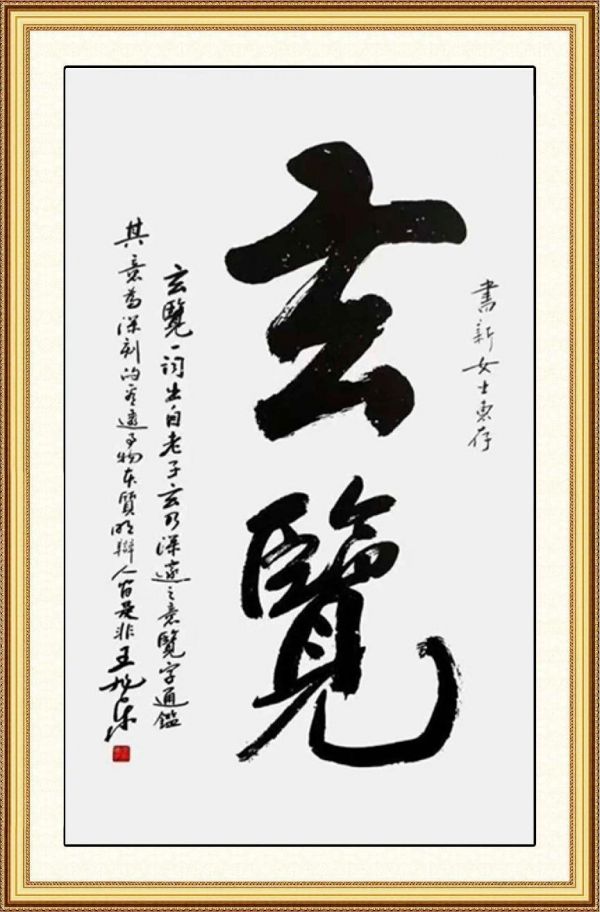 書新女士惠存
玄覽
玄覽一词出自老子玄乃深遠之意覽字通鑑
其意為深刻的看透事物本質明辯人间是非王